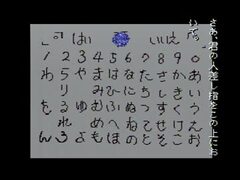 さあ、君の人差し指をこの上にお
いて
はい いいえ
1 2 3 4 5 6 7 8 9 0
わ ら や ま は な た さ か あ
り み ひ に ち し き い
を る ゆ む ふ ぬ つ す く う
れ め へ ね て せ け え
ん ろ よ も ほ の と そ こ お